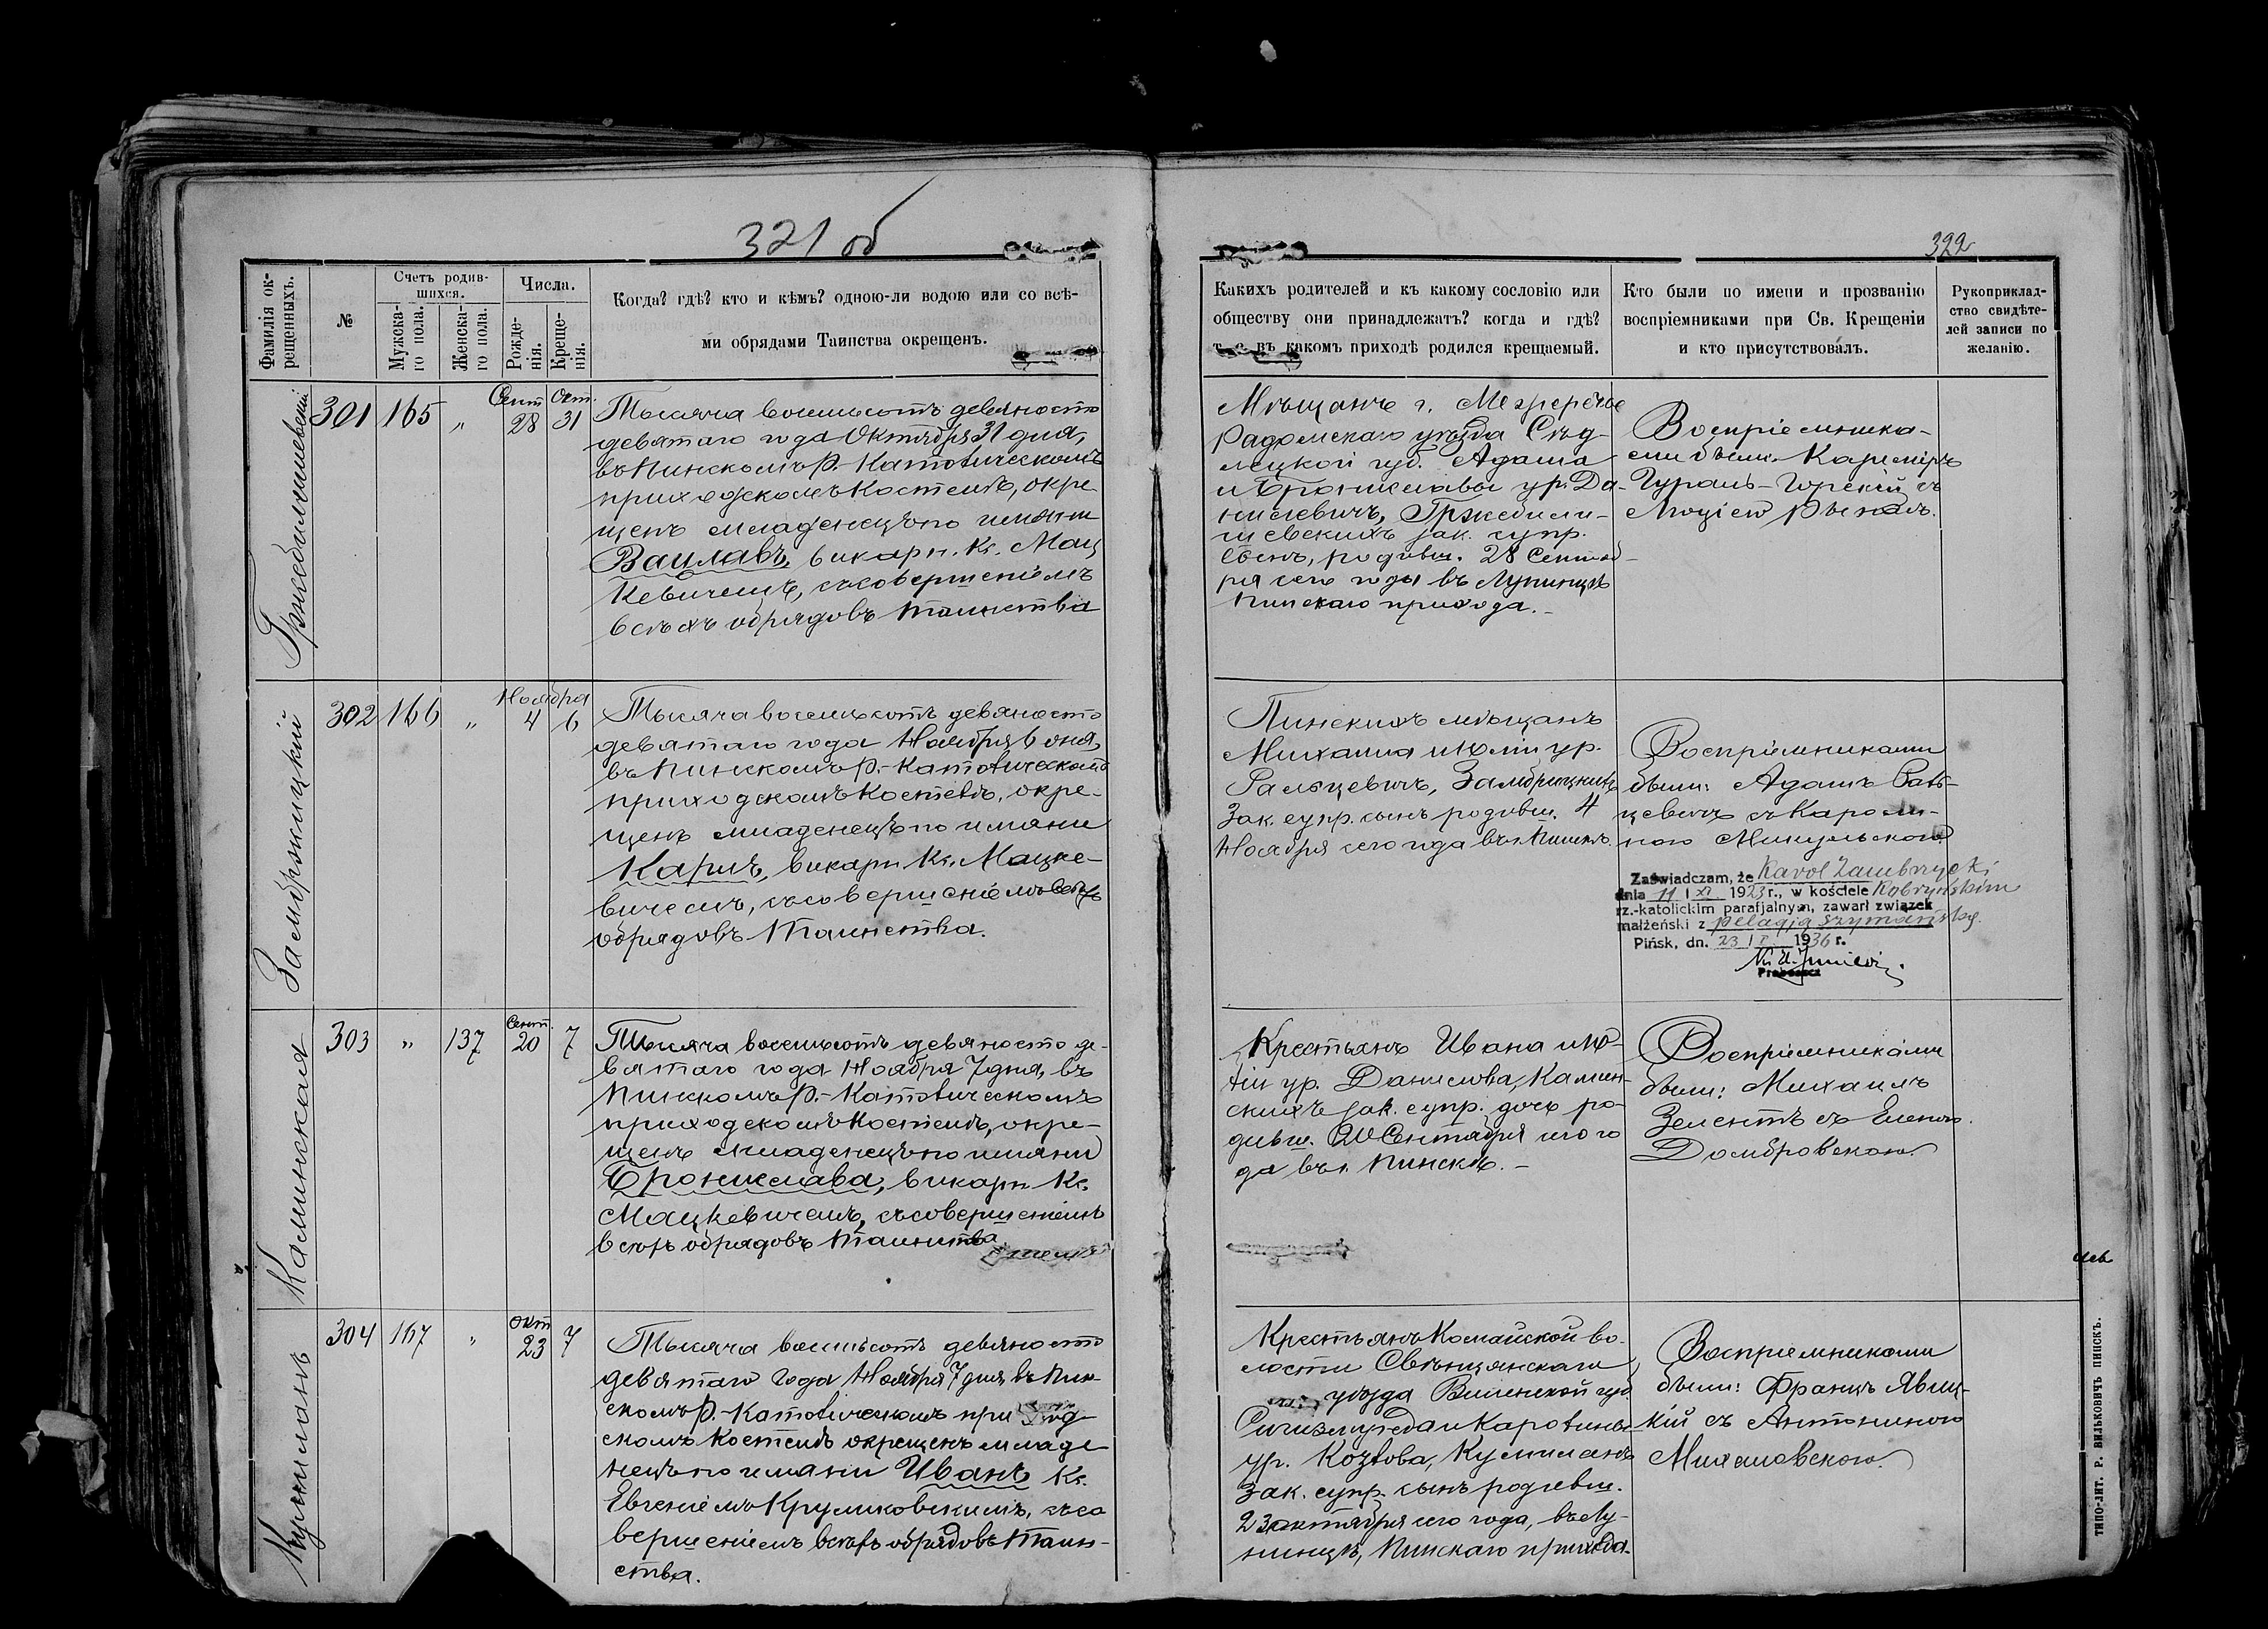 321 об
322
Фамилія ок-
рещенныхъ.
№
Счетъ родив-
шихся.
Мужска-
го пола.
Женска-
го пола.
Числа.
Рожде-
нія.
Креще-
нія.
Когда? гдѣ? кто и кѣмъ? одною-ли водою или со всѣ-
ми обрядами Таинства окрещенъ.
Какихъ родителей и къ какому сословію или
обществу они принадлежатъ? когда и гдѣ?
т. е. въ какомъ приходѣ родился крещаемый.
Кто были по имени и прозванію
воспріемниками при Св. Крещеніи
и кто присутствовалъ.
Рукоприклад-
ство свидѣте-
лей записи по
желанію.
301 165 „ Сент 28 Окт. 31
Тысяча восемьсотъ девяносто
девятаго года Октября 31 дня,
въ Пинскомъ Р.-Католическомъ
приходскомъ Костелѣ, окре-
щенъ младенецъ по имени
Вацлавъ, викарн. Кс. Мац
кевичемъ, съ совершеніемъ
всѣхъ обрядовъ таинства
Мѣщанъ г. Межречье
Радомскаго уѣзда Сѣд-
лецкой губ. Адама
и Брониславы ур. Да-
нилевичъ,
зак. супр.
сынъ, родивш. 28 Сентяб-
ря сего года въ Лунинцѣ
Пинскаго прихода.
Воспріемника-
ми были: Казиміръ
Гураль-Горскій съ
302 166 „ Ноября 4 6
Замбржицкій
Тысяча восемьсотъ девяносто
девятаго года Ноября 6 дня,
въ Пинскомъ Р.-Католическомъ
приходскомъ Костелѣ, окре-
щенъ младенецъ по имени
Карлъ, викарн. Кс. Мацке-
вичемъ, съ совершеніемъ всѣхъ
обрядовъ Таинства.
Пинскихъ мѣщанъ
Михаила и Юліи ур.
Ральцевичъ, Замбржицкихъ
Зак. супр. сынъ родивш. 4
Ноября сего года въ г. Пинскѣ.
Воспріемниками
были: Адамъ Раль-
цевичъ съ Кароли-
ною Микульскою
Zaświadczam, że Karol Zambrzycki
dnia 11 / XI 1923 r., w kościele Kobryńskim
rz.-katolickim parafjalnym, zawarł związek
małżeński z Pelagją Szymańską.
Pińsk, dn. 23 / I 1936 r.
Proboszcz
303 „ 137 Сент. 20 7
Каминская
Тысяча восемьсотъ девяносто де-
вятаго года Ноября 7 дня, въ
Пинскомъ Р.-Католическомъ
приходскомъ Костелѣ, окре-
щенъ младенецъ по имени
Бронислава, викарн. Кс.
Мацкевичемъ, съ совершеніемъ
всѣхъ обрядовъ Таинства
Крестьянъ Ивана и Ю-
ліи ур. Данилова, Камин-
скихъ зак. супр. дочь ро-
дивш. 20 Сентября сего го
да въ г. Пинскѣ.
Воспріемниками
были: Михаилъ
Зелентъ съ Еленою
Домбровскою.
304 167 „ Окт 23 7
Тысяча восемьсотъ девяносто
девятаго года Ноября 7 дня, въ Пин-
скомъ Р.-Католическомъ приход-
скомъ Костелѣ окрещенъ младе
нецъ по имени Иванъ Кс.
Евгеніемъ Круликовскимъ, съ со
вершеніемъ всѣхъ обрядовъ Таин-
ства.
Крестьянъ Комайской во-
лости Свѣнцянскаго
уѣзда Виленской губ
Сигизмунда и Каролины
ур. Козлова,
Зак. супр. сынъ родивш.
23 октября сего года, въ Лу-
нинцѣ, Пинскаго прихода.
Воспріемниками
были: Францъ
кій съ Антониною
Михаловскою.
ТИПО-ЛИТ. Р. ВИЛЬКОВИЧЪ ПИНСКЪ.